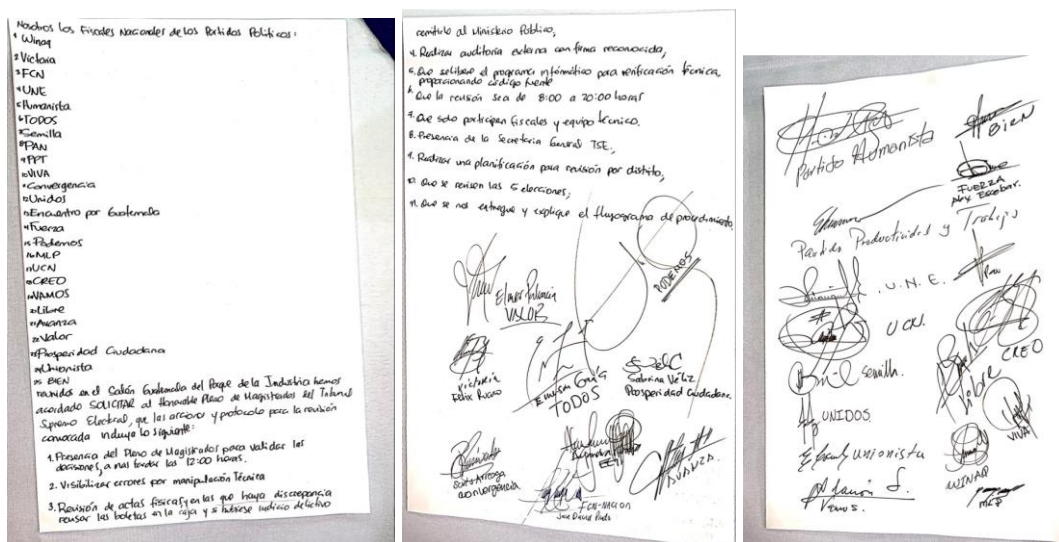 Nosotros los Fiscales Nacionales de los Partidos Políticos:
1 Winaq
2 Victoria
3 FCN
4 UNE
5 Humanista
6 TODOS
7 Semilla
8 PAN
9 PPT
10 VIVA
11 Convergencia
12 Unidos
13 Encuentro por Guatemala
14 Fuerza
15 Podemos
16 MLP
17 UCN
18 CREO
19 VAMOS
20 Libre
21 Avanza
22 Valor
23 Prosperidad Ciudadana
24 Unionista
25 BIEN
reunidos en el Salón Guatemala del Parque de la Industria hemos
acordado SOLICITAR al Honorable Pleno de Magistrados del Tribunal
Supremo Electoral, que las acciones y protocolo para la revisión
convocada incluya lo siguiente:
1. Presencia del Pleno de Magistrados para validar las
decisiones, a mas tardar las 12:00 horas.
2. Visibilizar errores por manipulación Técnica
3. Revisión de actas físicas, en las que haya discrepancia
revisar las boletas en la caja y si hubiese indicio delictivo
remitirlo al Ministerio Público,
4. Realizar auditoría externa con firma reconocida,
5. Que se libere el programa informático para verificación técnica,
proporcionando código fuente
6. Que la revisión sea de 8:00 a 20:00 horas
7. Que solo participen fiscales y equipo técnico.
8. Presencia de la Secretaria General TSE,
9. Realizar una planificación para revisión por distrito,
10. Que se revisen las 5 elecciones,
11. Que se nos entregue y explique el flujograma de procedimiento.
PODEMOS
Elmer Palencia
VALOR
Victoria
Felix
TODOS
Sabrina Véliz
Prosperidad Ciudadana.
Convergencia
AVANZA.
FCN-NACION
Jose David
Partido Humanista
BIEN
FUERZA
Alex Escobar.
Partido Productividad y Trabajo
U.N.E.
UCN.
CREO
Semilla.
Libre
UNIDOS
VIVA
Unionista
WINAQ
Vamos.
MLP